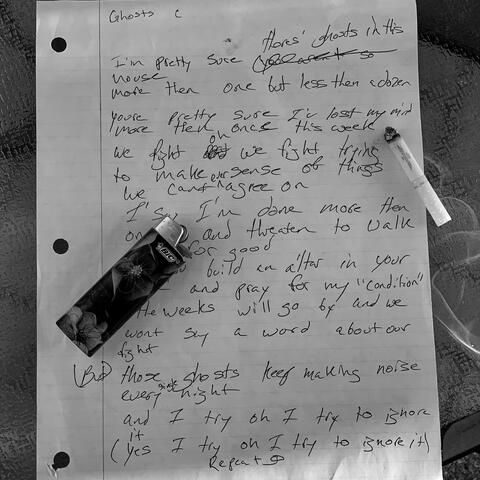 Ghosts C
I'm pretty sure theres' ghosts in this
house
more then one but less then a dozen
youre pretty sure I'v lost my mind
more then once this week
we fight on we fight trying
to make ever sense of things
we cant agree on
I'm done more then
on and threaten to walk
for good
BIC
build an altar in your
and pray for my "condition"
The weeks will go by and we
wont say a word about our
fight
(But) those ghosts keep making noise
every single night
and I try oh I try to ignore
it
(yes I try oh I try to ignore it)
Repeat